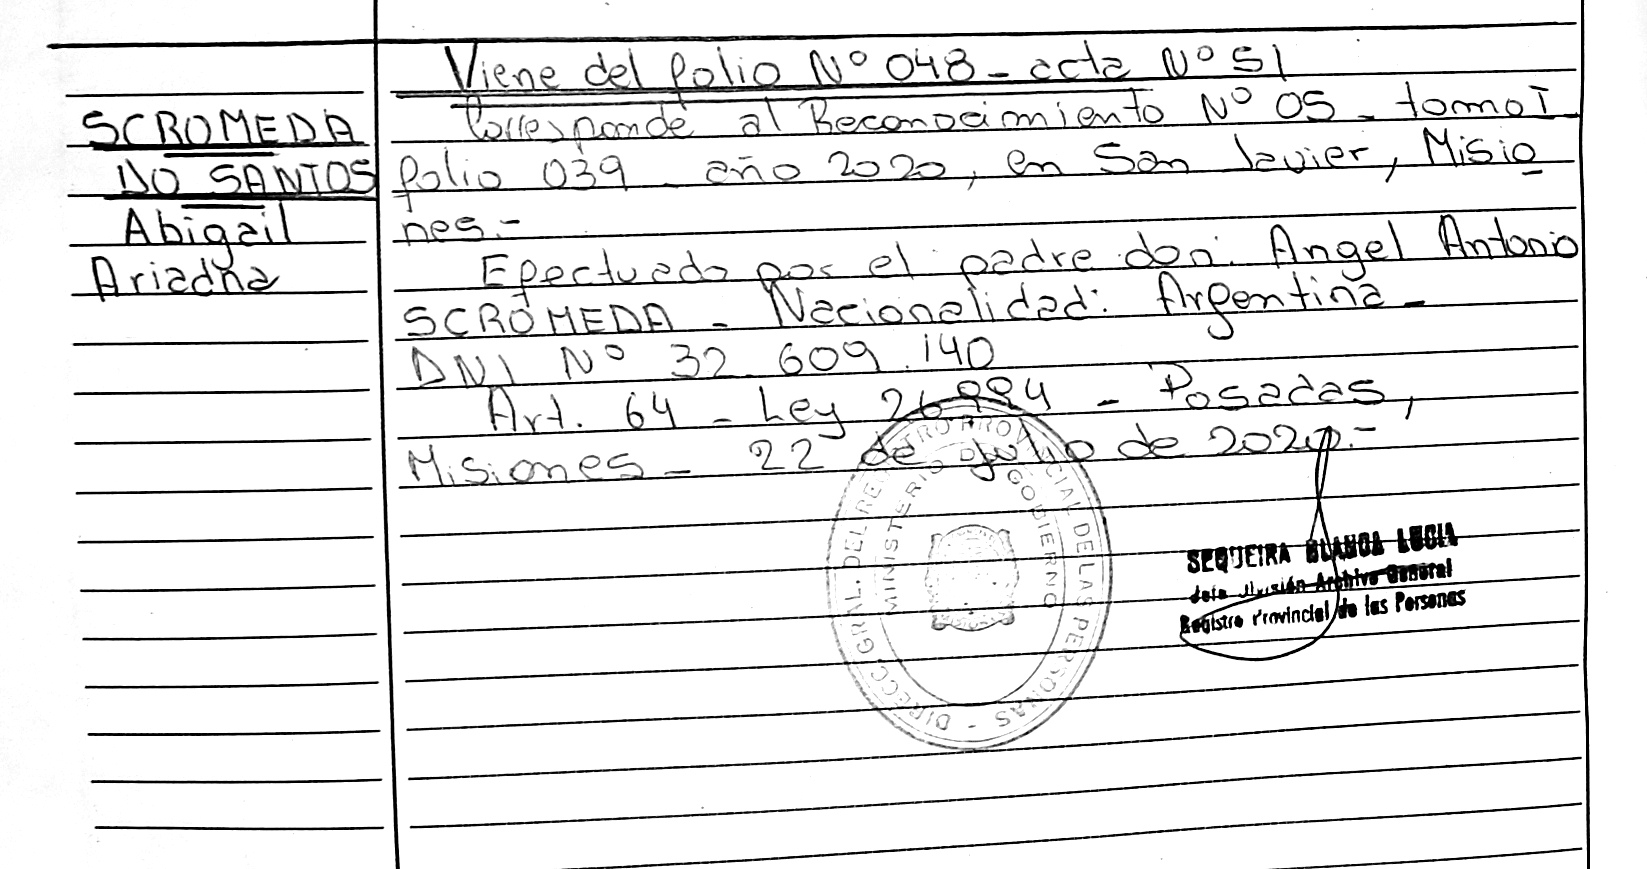 Viene del folio Nº 048 - acta Nº 51
SCROMEDA
DO SANTOS
Abigail
Ariadna
Corresponde al Reconocimiento Nº 05 - tomo I
folio 039 - año 2020, en San Javier, Misio
nes.-
Efectuado por el padre don: Angel Antonio
SCROMEDA - Nacionalidad: Argentina -
DNI Nº 32.609.140
Art. 64 - Ley 26994 - Posadas,
Misiones - 22 de julio de 2020.-
DIRECC. GRAL. DEL REGISTRO PROVINCIAL DE LAS PERSONAS -
MINISTERIO DE GOBIERNO
SEQUEIRA BLANCA LUCIA
Jefa División Archivo General
Registro Provincial de las Personas